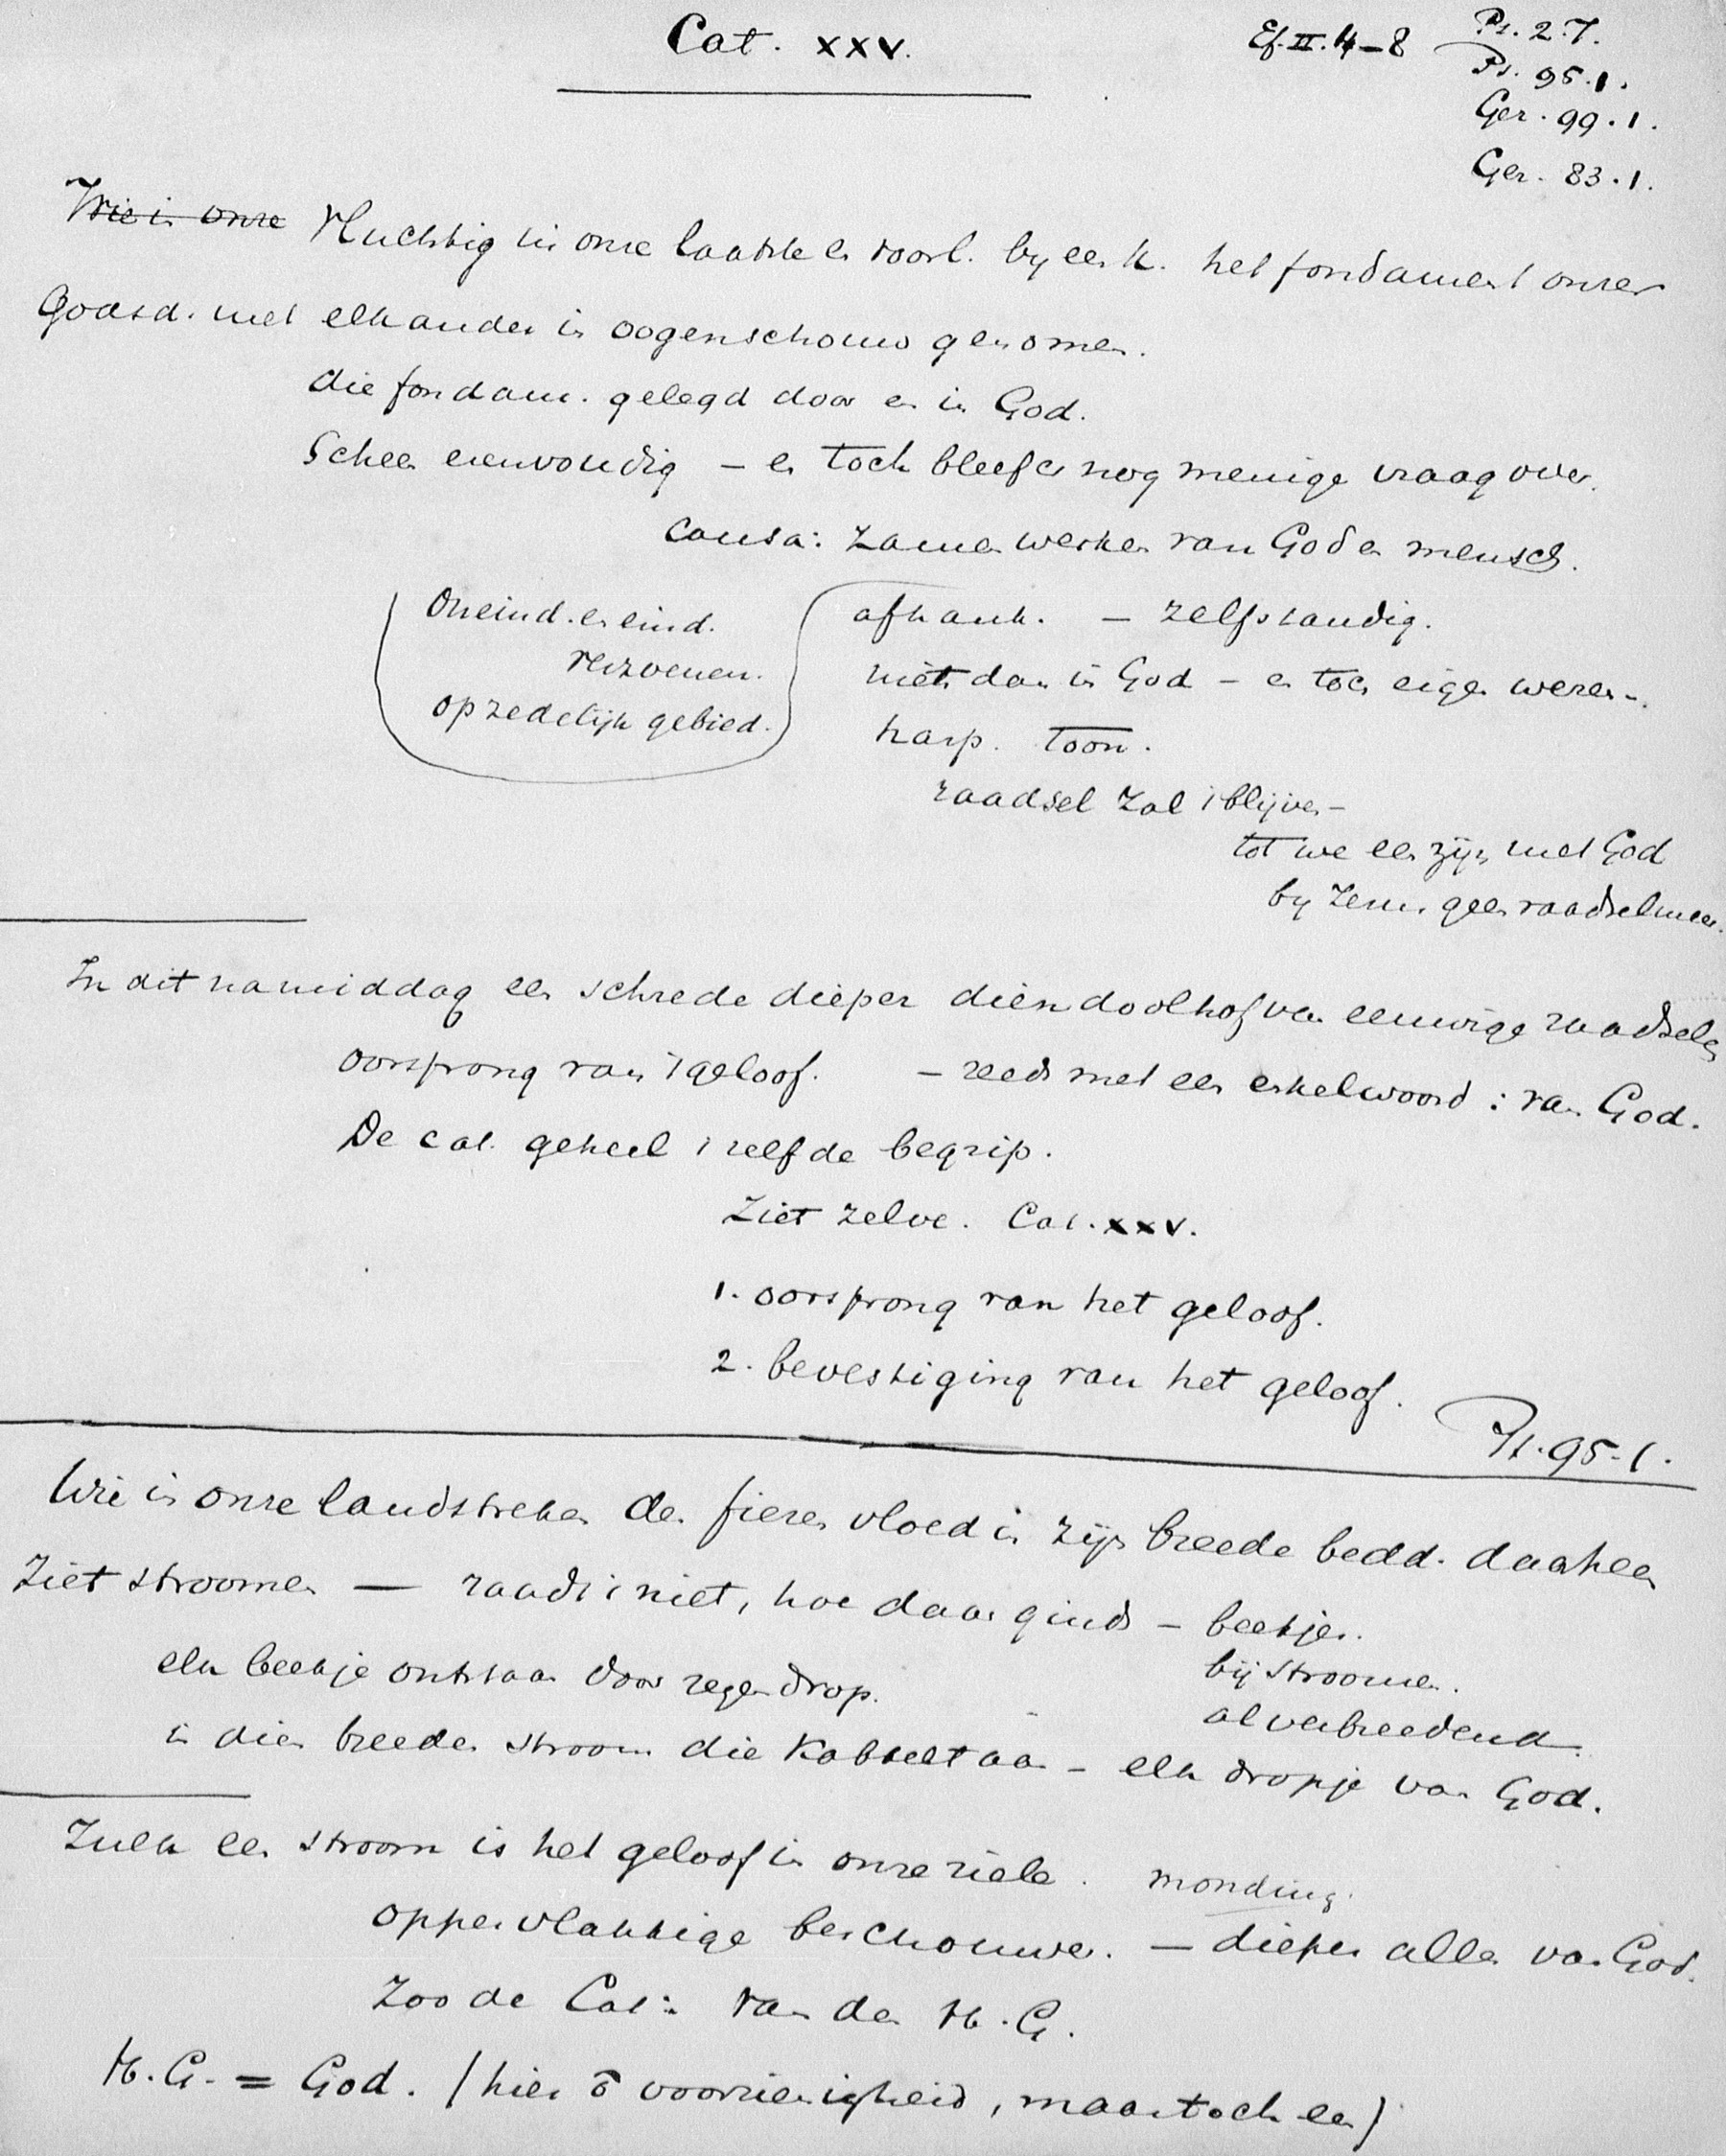 Cat. XXV.
Ef. II. 4-8
Ps. 2.7.
Ps. 95.1.
Gez. 99.1.
Gez. 83.1.
Wie in onze Vluchtig in onze laatste en voorl. by eenk. het fondament onzer
Godsd. met elkander in oogenschouw genomen.
die fondam. gelegd door en in God.
Scheen eenvoudig – en toch bleef er nog menige vraag over.
causa: zamenwerken van God en mensch.
Oneind. en eind.
verzoenen.
op zedelijk gebied.
afhank. – zelfstandig.
niets dan in God – en toch eigen wezen –.
harp. toon.
raadsel zal 't blijven –
tot we een zijn met God
by Hem geen raadsel meer.
In dit namiddag een schrede dieper dien doolhof van eeuwige raadselen
oorsprong van 't geloof. – reeds met een enkel woord: van God.
De cat. geheel 't zelfde begrip.
Ziet zelve. Cat. XXV.
1. oorsprong van het geloof.
2. bevestiging van het geloof.
Ps. 95-1.
Wie in onze landstreken den fieren vloed in zijn breede bedd. daarheen
ziet stroomen — raadt 't niet, hoe daar ginds – beekjes.
bij stroomen.
al verbreedend.
elk beekje ontstaan door regendrop.
in dien breeden stroom die Kabbelt aan – elk dropje van God.
Zulk een stroom is het geloof in onze ziele. monding.
oppervlakkige beschouwer. — dieper alles van God.
Zoo de Cat: van den H. G.
H. G. = God. (hier ō voorzienigheid, maar toch een)